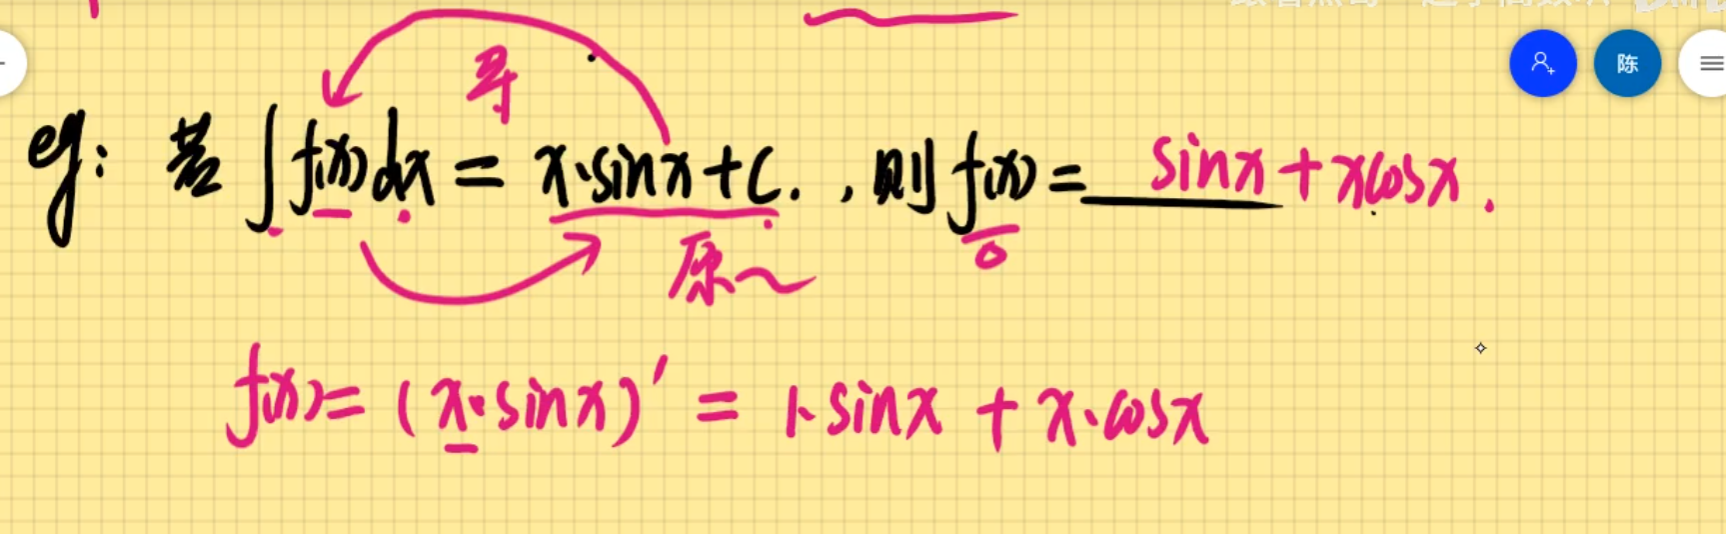 导
陈
eg: 若 ∫f(x)dx = x·sinx+C. , 则 f(x) = sinx + xcosx .
原~
f(x) = (x·sinx)′ = 1·sinx + x·cosx